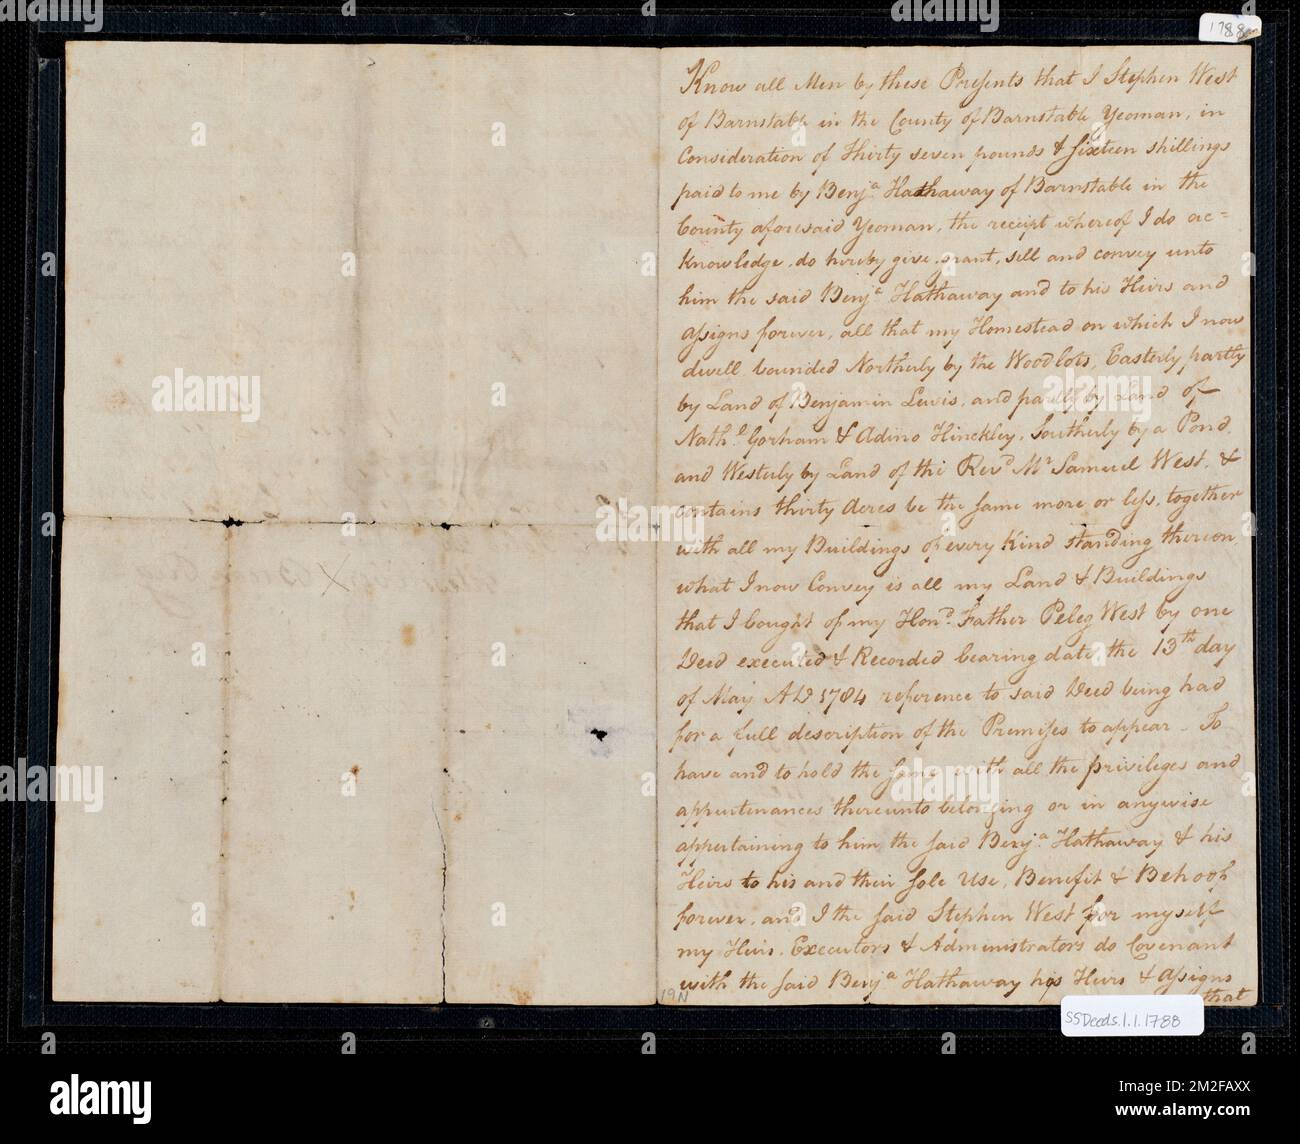 1788
Know all Men by these Presents that I Stephen West
of Barnstable in the County of Barnstable Yeoman, in
Consideration of Thirty seven pounds & sixteen shillings
paid to me by Benja. Hathaway of Barnstable in the
County aforesaid Yeoman, the receipt whereof I do ac=
knowledge, do hereby give, grant, sell and convey unto
him the said Benja. Hathaway and to his Heirs and
assigns forever, all that my Homestead on which I now
dwell bounded Northerly by the Woodlots, Easterly partly
by Land of Benjamin Lewis, and partly by Land of
Nathl. Gorham & Adino Hinckley, Southerly by a Pond,
and Westerly by Land of the Revd Mr Samuel West, &
contains thirty Acres be the same more or less, together
with all my Buildings of every Kind standing thereon,
what I now Convey is all my Land & Buildings
that I bought of my Hond. Father Peleg West by one
Deed executed & Recorded bearing date the 13th day
of May AD. 1784 reference to said Deed being had
for a full description of the Premises to appear. To
have and to hold the same with all the privileges and
appurtenances thereunto belonging or in anywise
appertaining to him the said Benja. Hathaway & his
Heirs to his and their sole Use, Benefit & Behoof
forever, and I the said Stephen West for myself
my Heirs, Executors & Administrators do Covenant
with the said Benja Hathaway his Heirs & assigns
that
19N
SSDeeds.1.1.1788
alamy
Image ID: 2M2FAXX
www.alamy.com